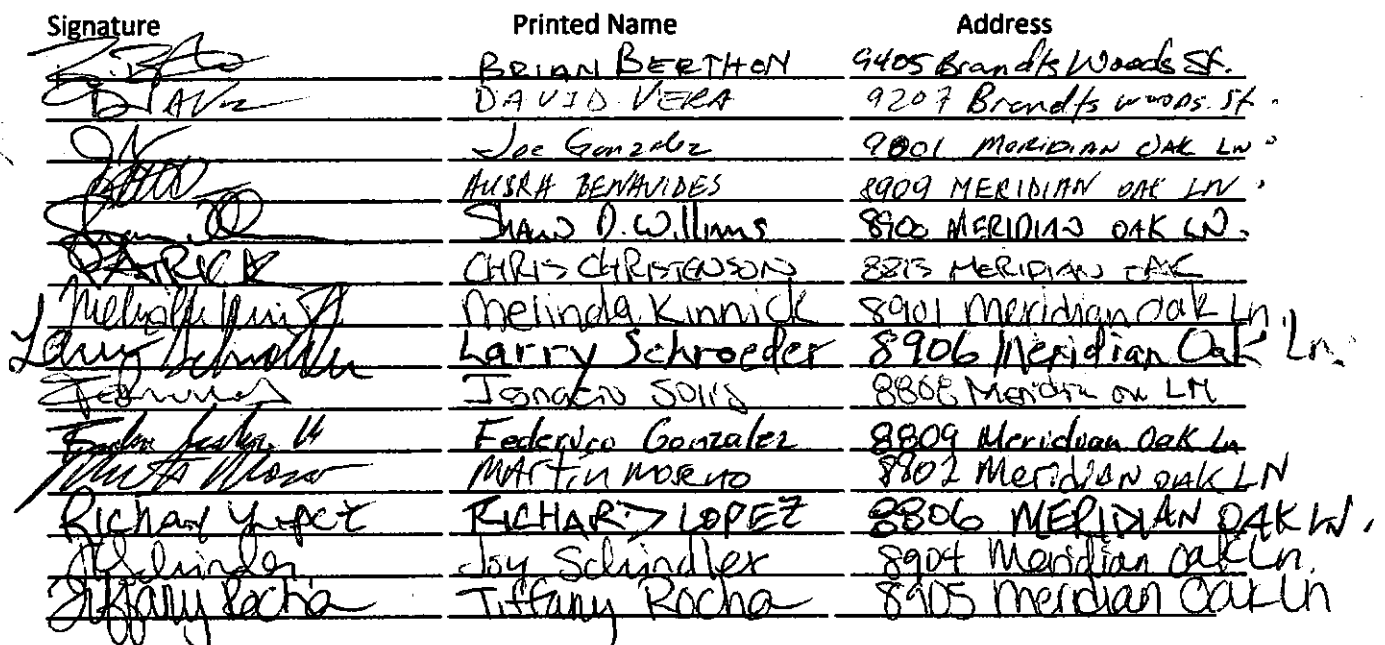 Signature Printed Name Address
BRIAN BERTHON 9405 Brandts Woods St.
DAVID VERA 9207 Brandts WOODS St.
Joe Gonzalez 9001 MERIDIAN OAK LN
BENAVIDES 8909 MERIDIAN OAK LN.
SHAWN D. Williams 8900 MERIDIAN OAK LN.
CHRIS CHRISTENSON 8813 MERIDIAN OAK
Melinda Kinnick 8901 Meridian Oak Ln.
Larry Schroeder Larry Schroeder 8906 Meridian Oak Ln.
Ignacio Solis 8808 Meridian LN
Federico Gonzalez 8809 Meridian Oak Ln
MARTIN MORENO 8802 MeridiAN OAK LN
Richard Lopez RICHARD LOPEZ 8806 MERIDIAN OAK LN.
Schindler Joy Schindler 8904 Meridian Oak Ln.
Tiffany Rocha Tiffany Rocha 8905 Meridian Oak Ln